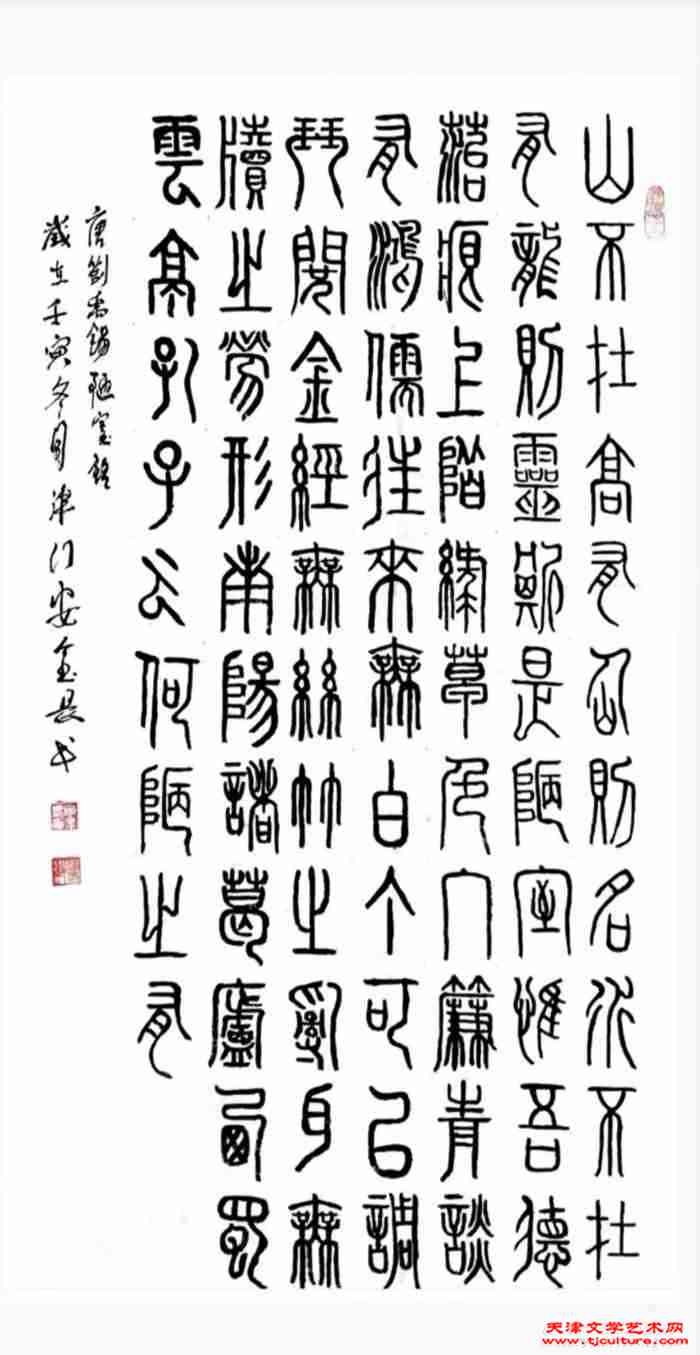 山不在高有仙則名水不在
有龍則靈斯是陋室惟吾德
菭痕上階綠草色入簾青談
有鴻儒往來無白丁可以調
琴閱金經無絲竹之亂耳無
牘之勞形南陽諸葛廬西蜀
雲亭孔子云何陋之有
唐劉禹錫陋室銘
歲在壬寅冬月津门安金书
天津文学艺术网
www.tjculture.com